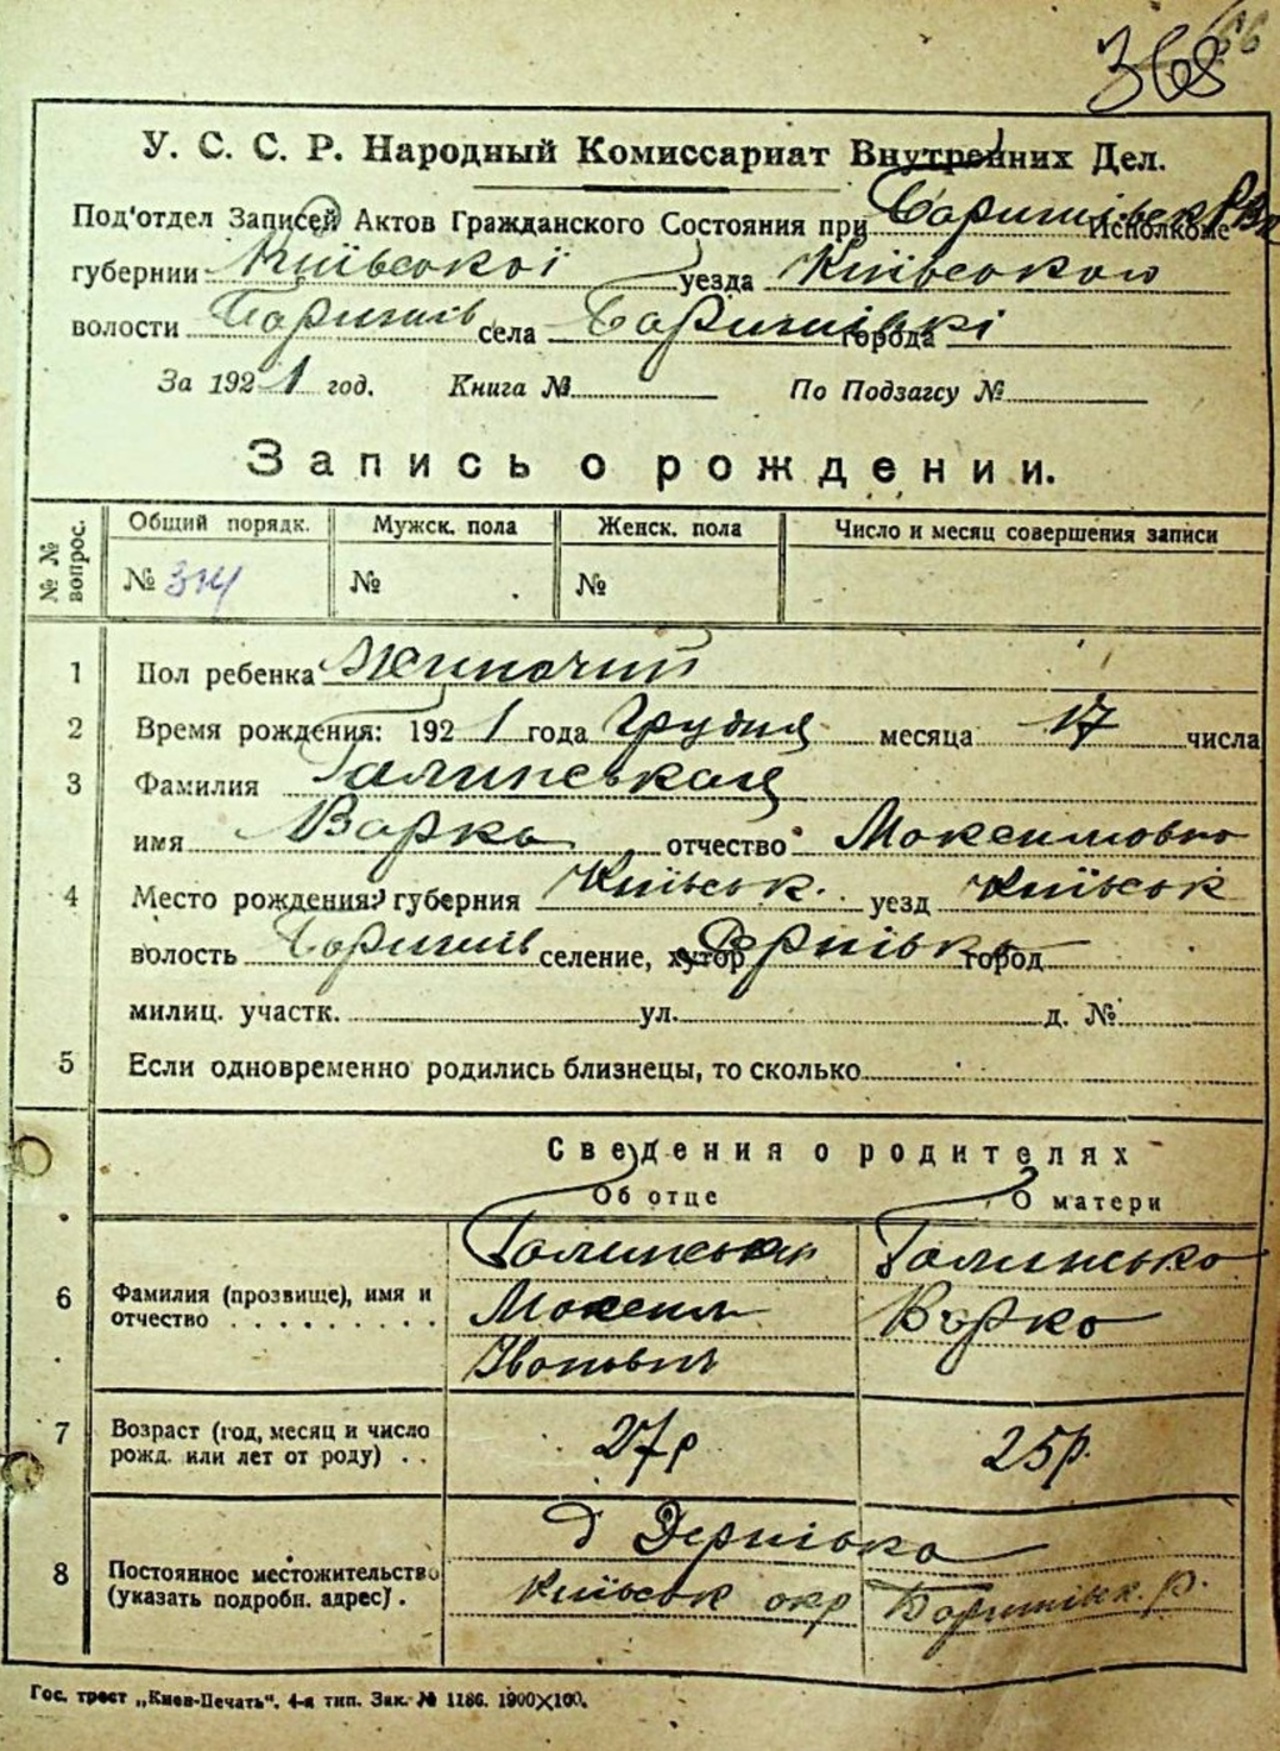 368
У. С. С. Р. Народный Комиссариат Внутренних Дел.
Под'отдел Записей Актов Гражданского Состояния при Исполкоме
губернии Київської уезда Київського
волости Баришів села Баришівкі города
За 1921 год. Книга № По Подзагсу №
Запись о рождении.
№ № вопрос. Общий порядк. Мужск. пола Женск. пола Число и месяц совершения записи
№ 314 № №
1 Пол ребенка Жиночий
2 Время рождения: 1921 года Грудня месяца 17 числа
3 Фамилия Галинськая
имя Варка отчество Максимовна
4 Место рождения: губерния Київськ. уезд Київськ
волость Баришів селение, хутор Дернівка город
милиц. участк. ул. д. №
5 Если одновременно родились близнецы, то сколько
Сведения о родителях
Об отце О матери
6 Фамилия (прозвище), имя и отчество . . . . . . . . . Галинський Максим Іванович Галинська Варка
7 Возраст (год, месяц и число рожд. или лет от роду) . . 27р 25р.
8 Постоянное местожительство (указать подробн. адрес) . д Дернівка
Київськ окр Баришівск. р.
Гос. трест „Киев-Печать“. 4-я тип. Зак. № 1186. 1900×100.